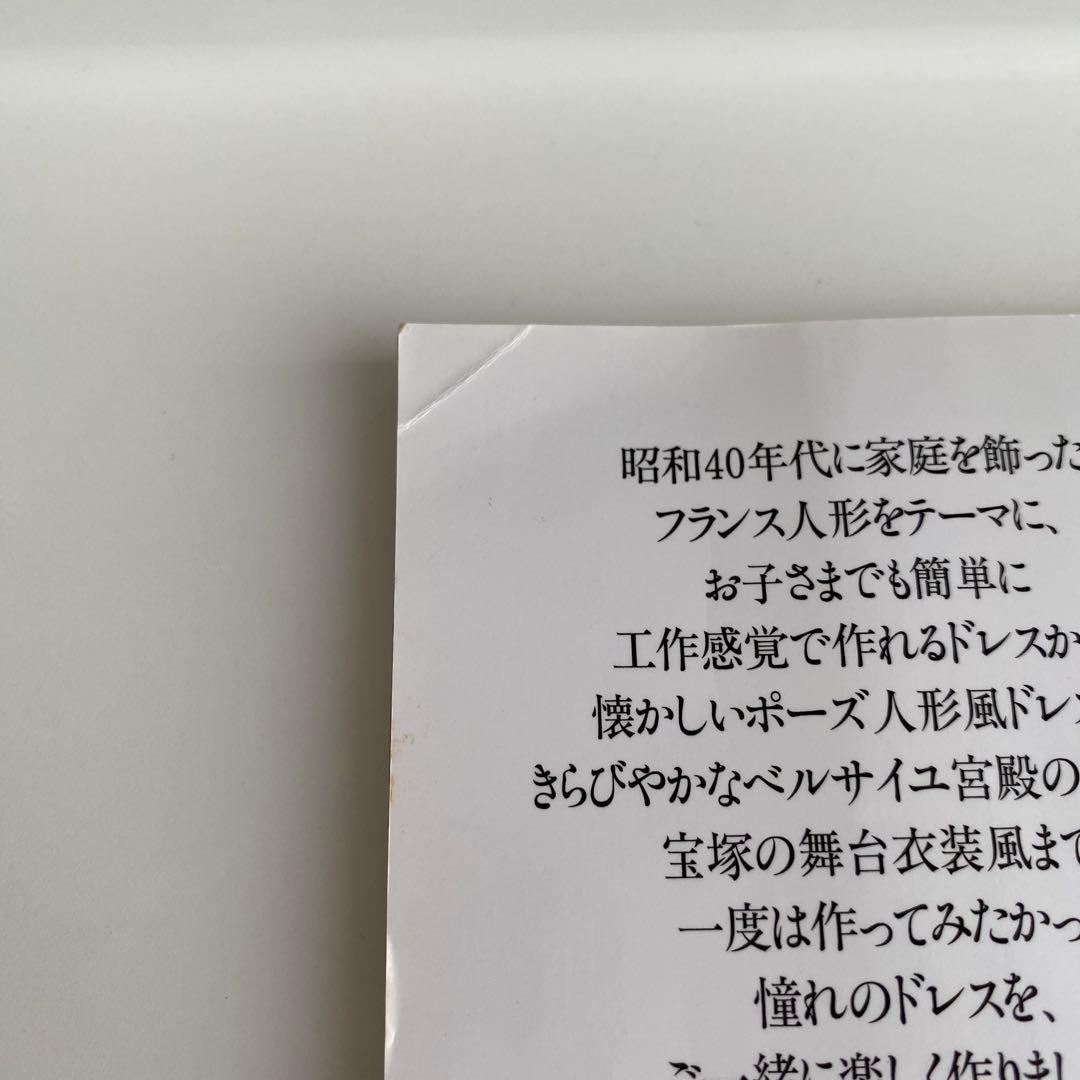 昭和40年代に家庭を飾った
フランス人形をテーマに、
お子さまでも簡単に
工作感覚で作れるドレスか
懐かしいポーズ人形風ドレ
きらびやかなベルサイユ宮殿の
宝塚の舞台衣装風まで
一度は作ってみたかっ
憧れのドレスを、
ご一緒に楽しく作りまし